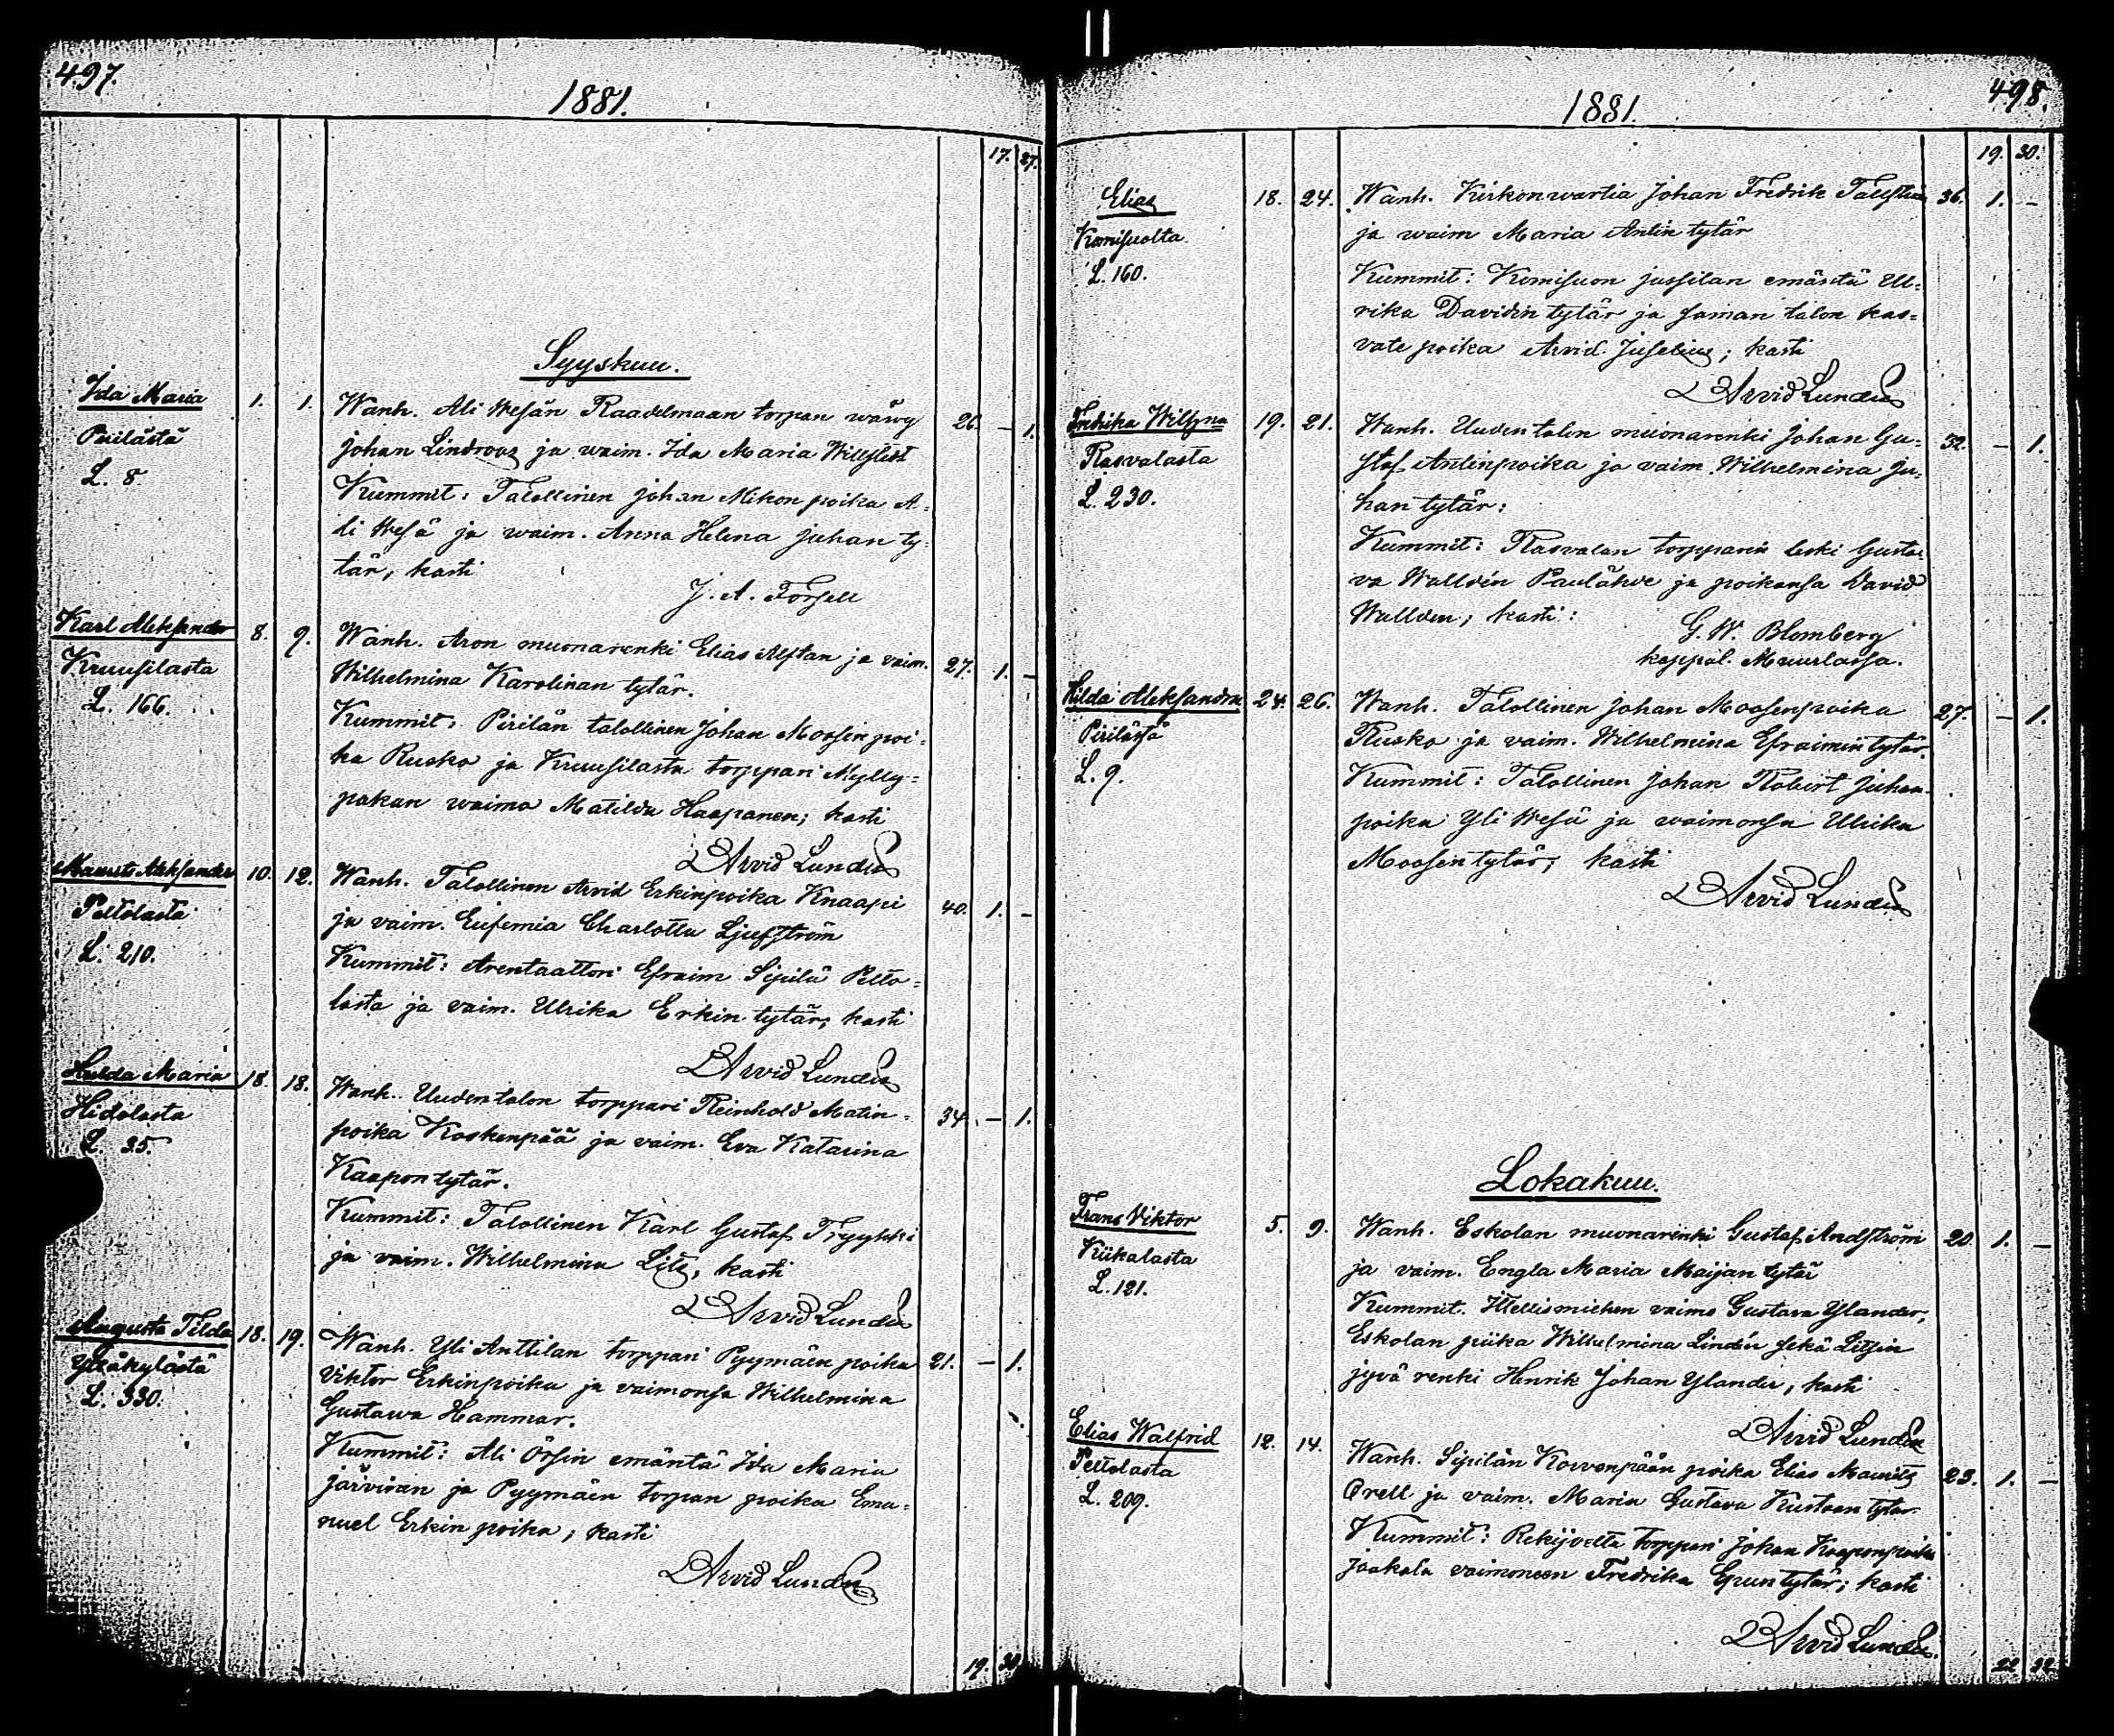 497.
1881.
17. 27.
Syyskuu.
Ida Maria 1. 1. Wanh. Ali Wesän Raadelmaan torpan wäwy 26. — 1.
Piilästä Johan Lindroos ja waim. Ida Maria
L. 8 Kummit: Talollinen Johan Mikon poika A-
li Wesä ja waim. Anna Helena Juhan ty-
tär, kasti
J. A. Forsell
Karl Aleksander 8. 9. Wanh. Aron muonarenki Elias Alftan ja vaim. 27. 1. —
Kruusilasta Wilhelmina Karolinan tytär.
L. 166. Kummit: Pirilän talollinen Johan Moosen poi-
ka Rusko ja Kruusilasta torppari Mylly-
pakan waimo Matilda Haapanen; kasti
Arvid Lundén
Maurits Aleksander 10. 12. Wanh. Talollinen Arvid Erkinpoika Knaapi 40. 1. —
Peltolasta ja vaim. Eufemia Charlotta Ljufström
L. 210. Kummit: Arentaattori Efraim Sipilä Pelto-
lasta ja vaim. Ulrika Erkin tytär; kasti
Arvid Lundén
Hulda Maria 18. 18. Wanh. Uudentalon torppari Reinhold Matin- 34. — 1.
Hidolasta poika Koskenpää ja vaim. Eva Katarina
L. 35. Kaapontytär.
Kummit: Talollinen Karl Gustaf Tryykki
ja vaim. Wilhelmina kasti
Arvid Lundén
Augusta Tilda 18. 19. Wanh. Yli Anttilan torppari Pyymäen poika 21. — 1.
Yliskylästä Viktor Erkinpoika ja vaimonsa Wilhelmina
L. 330. Gustawa Hammar.
Kummit: Ali Örsin emäntä Ida Maria
Järvinen ja Pyymäen torpan poika Ema-
nuel Erkin poika; kasti
Arvid Lundén
19. 30.
498.
1881.
19. 30.
Elias 18. 24. Wanh. Kirkonwartia Johan Fredrik 36. 1. —
Komisuolta ja waim Maria Antin tytär
L. 160. Kummit: Komisuon Jussilan emäntä Ul-
rika Davidin tytär ja saman talon kas-
vate poika Arvid Juselius; kasti
Arvid Lundén
Fredrika 19. 21. Wanh. Uudentalon muonarenki Johan Gu- 32. — 1.
Rasvalasta staf Antinpoika ja vaim. Wilhelmina Ju-
L. 230. hantytär:
Kummit: Rasvalan torpparin leski Gusta-
va Walldén ja poikansa David
Wallden; kasti:
G. W. Blomberg
kappal. Muurlassa.
Hilda Aleksandra 24. 26. Wanh. Talollinen Johan Moosenpoika 27. — 1.
Pirilässä Rusko ja vaim. Wilhelmina Efraimintytär.
L. 9. Kummit: Talollinen Johan Robert Juhan-
poika Yli Wesä ja waimonsa Ulrika
Moosentytär; kasti
Arvid Lundén
Lokakuu.
Frans Viktor 5. 9. Wanh. Eskolan muonarenki Gustaf Andström 20. 1. —
Kiikalasta ja vaim. Engla Maria Maijan tytär
L. 121. Kummit. Itellismiehen vaimo Gustava Ylander,
Eskolan piika Wilhelmina Lindén sekä
jyvä renki Henrik Johan Ylander; kasti
Arvid Lundén
Elias Walfrid 12. 14. Wanh. Sipilän Korvenpään poika Elias Maurits 23. 1. —
Peltolasta Orell ja vaim. Maria Gustava Kustaan tytär
L. 209. Kummit: Rekijoelta torppari Johan Kaaponpoika
Jaakola vaimoneen Fredrika tytär; kasti
Arvid Lundén.
22 32